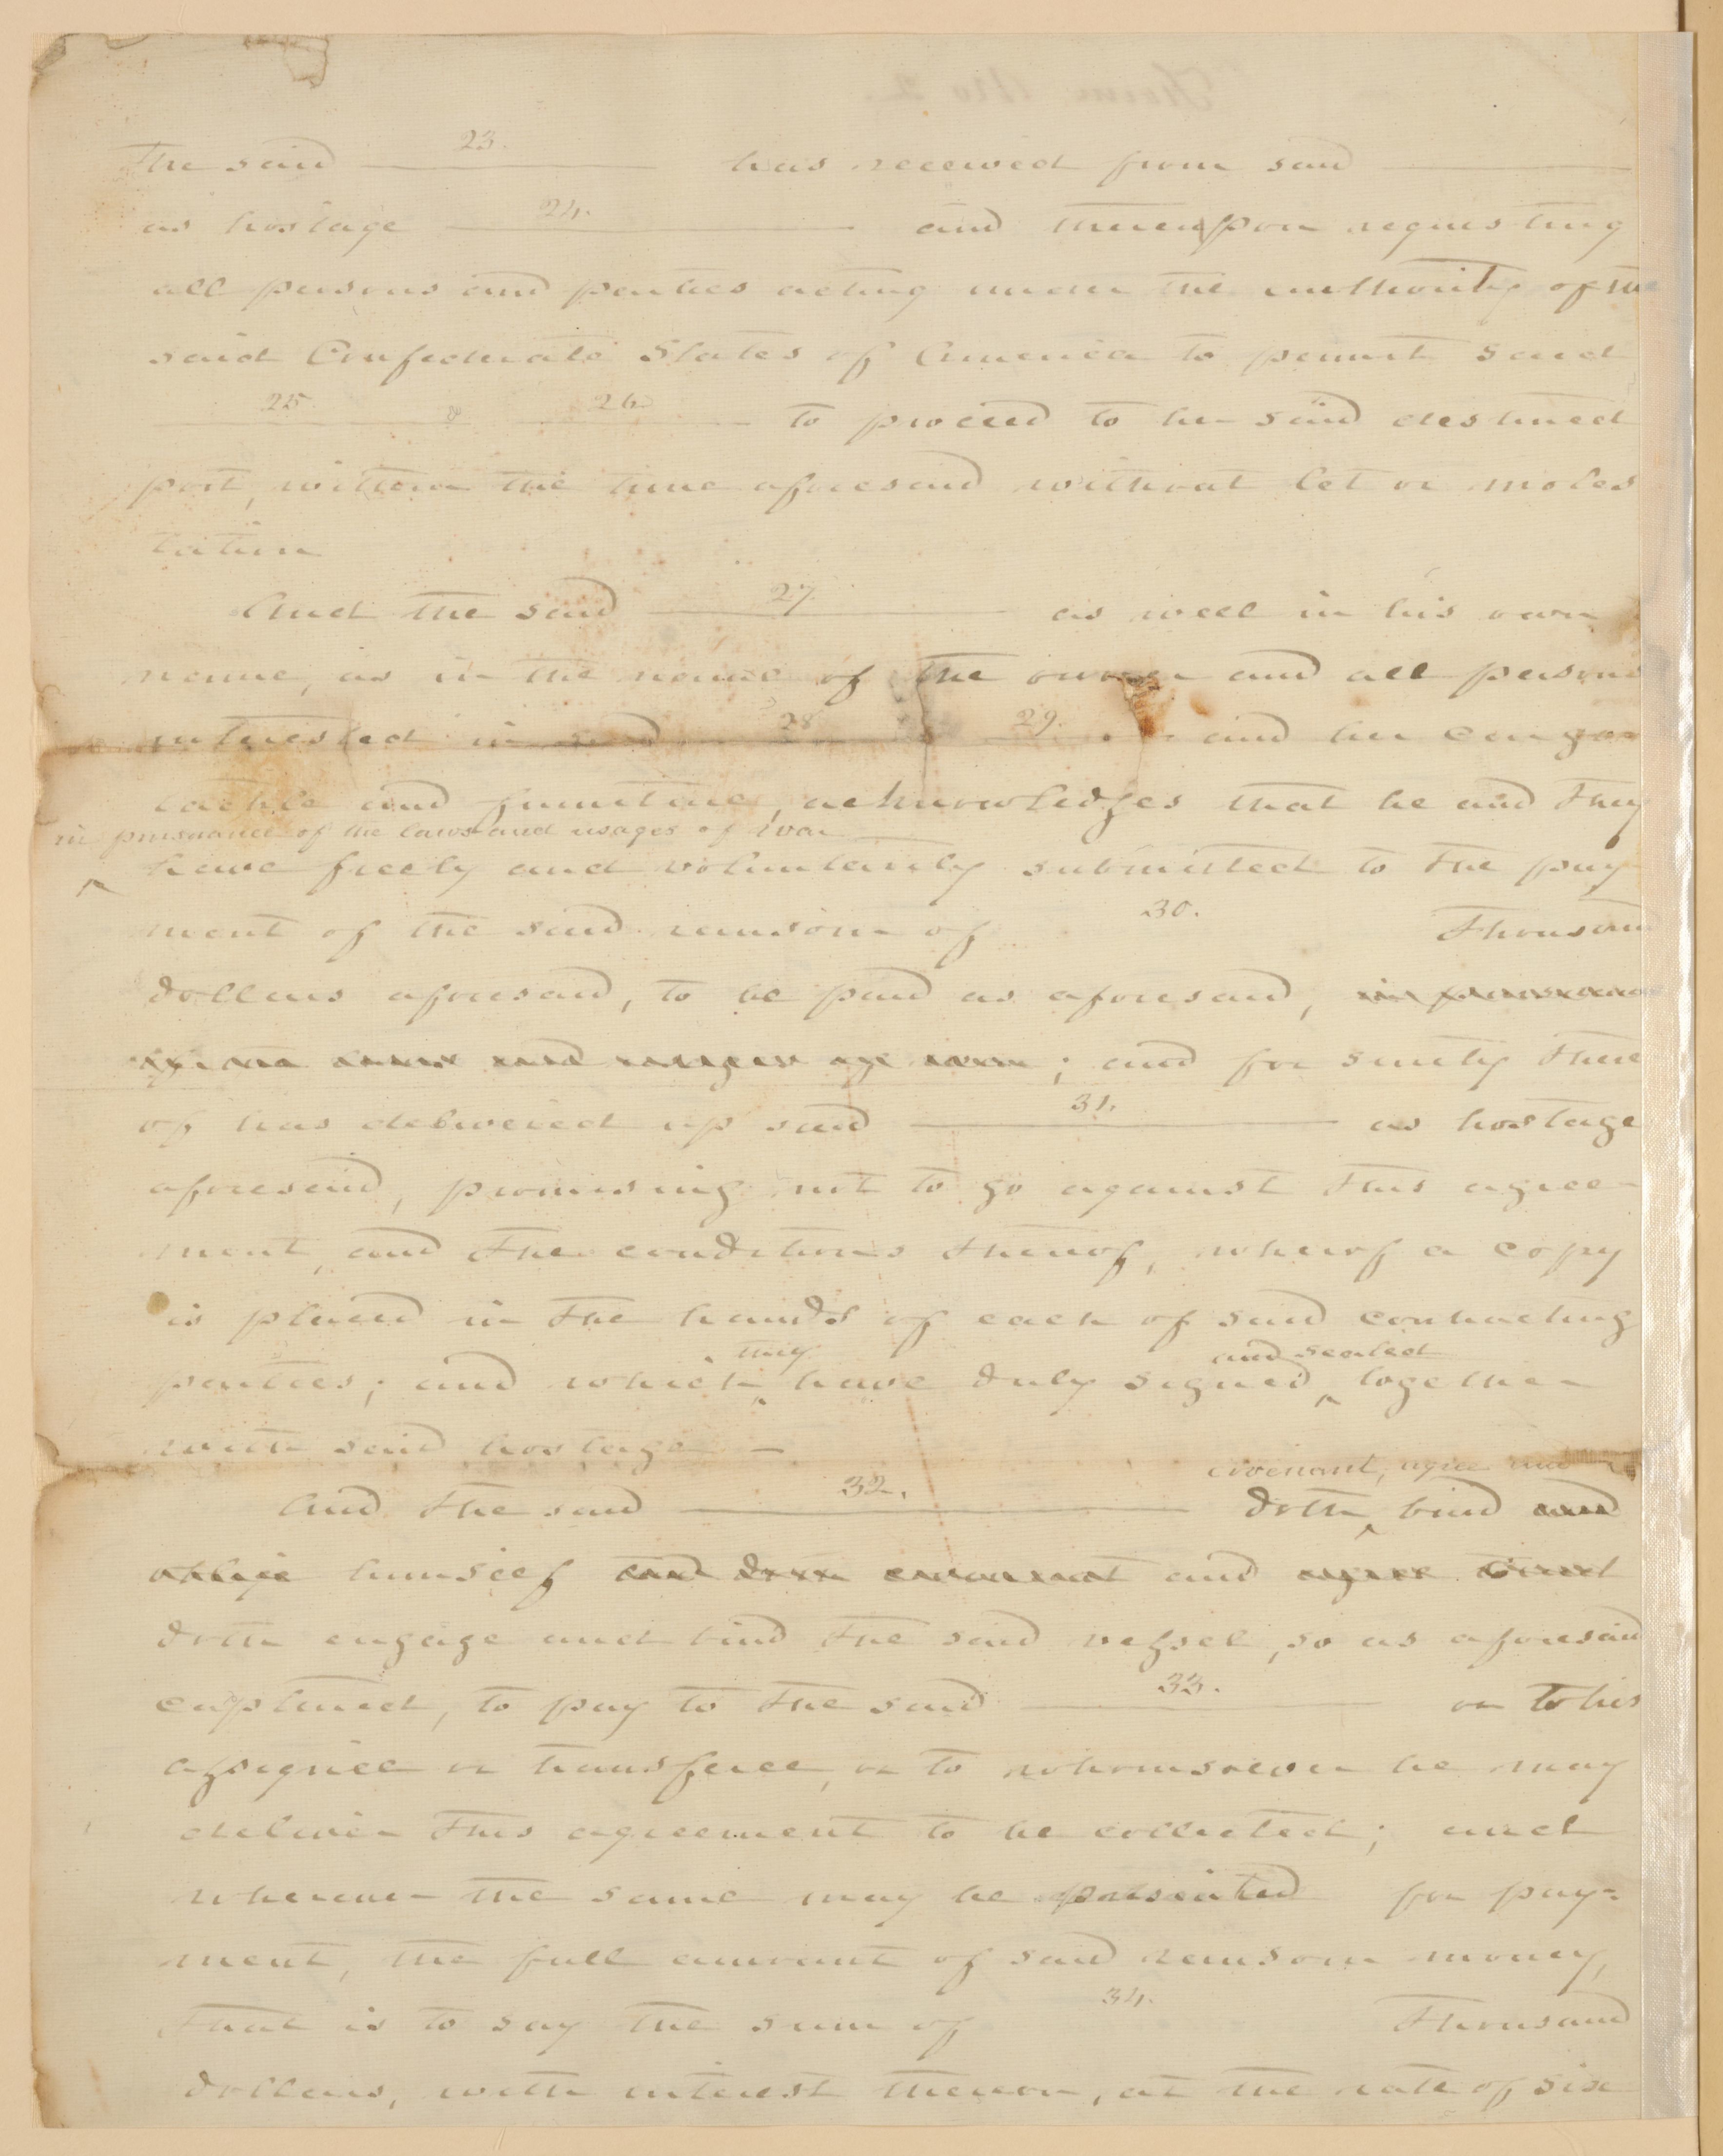 the said ——— 23. ——— has received from said ———
as hostage ——— 24. ——— and thereupon requesting
all persons and parties acting under the authority of the
said Confederate States of America to permit said
——— 25 ——— & ——— 26 ——— to proceed to her said destined
port, within the time aforesaid without let or moles
tation
And the said ——— 27. ——— as well in his own
name, as in the name of the owner and all persons
interested in said ——— 28 ——— 29. ——— and her cargo
tackle and furniture, acknowledges that he and they
in pursuance of the laws and usages of war
have freely and voluntarily submitted to the pay
ment of the said ransom of 30. Thousand
dollars aforesaid, to be paid as aforesaid, in pursuance
of the laws and usages of war ; and for surety there
of has delivered up said ——— 31. ——— as hostage
aforesaid, promising not to go against this agree-
ment, and the conditions thereof, whereof a copy
is placed in the hands of each of said contracting
they and sealed
parties; and which have duly signed, together
with said hostage —
covenant, agree and
And the said ——— 32. ——— doth bind and
oblige himself and doth covenant and agree
doth engage and bind the said vessel, so as aforesaid
captured, to pay to the said ——— 33. ——— or to his
assignee or transferee, or to whomsoever he may
deliver this agreement to be collected; and
whenever the same may be presented for pay=
ment, the full amount of said ransom money,
that is to say the sum of 34. Thousand
dollars, with interest thereon, at the rate of six